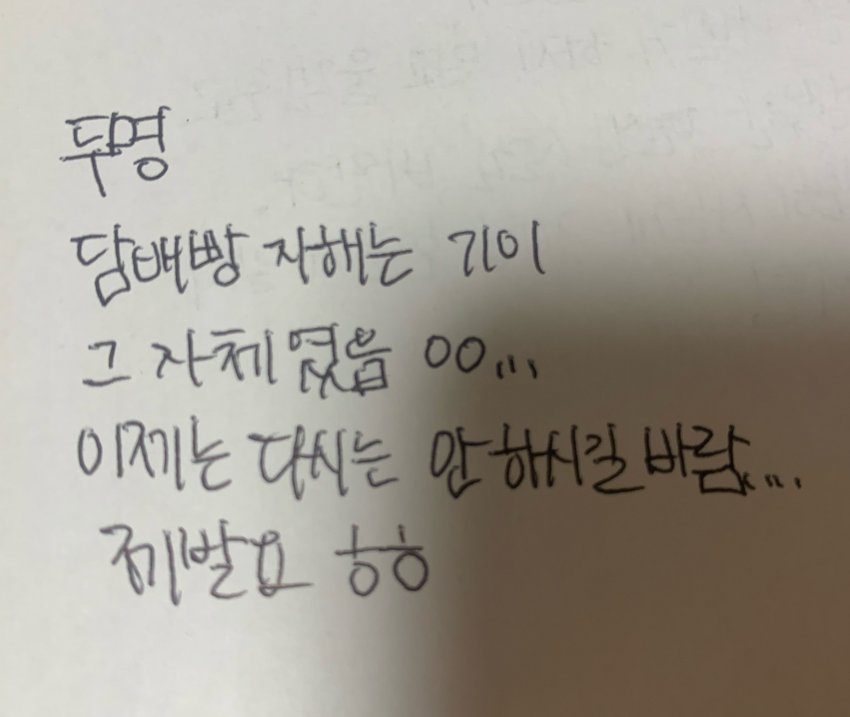 투명
담배빵 자해는 기이
그 자체였음 ㅇㅇ...
이제는 다시는 안 하시길 바람...
제발요 ㅎㅎ